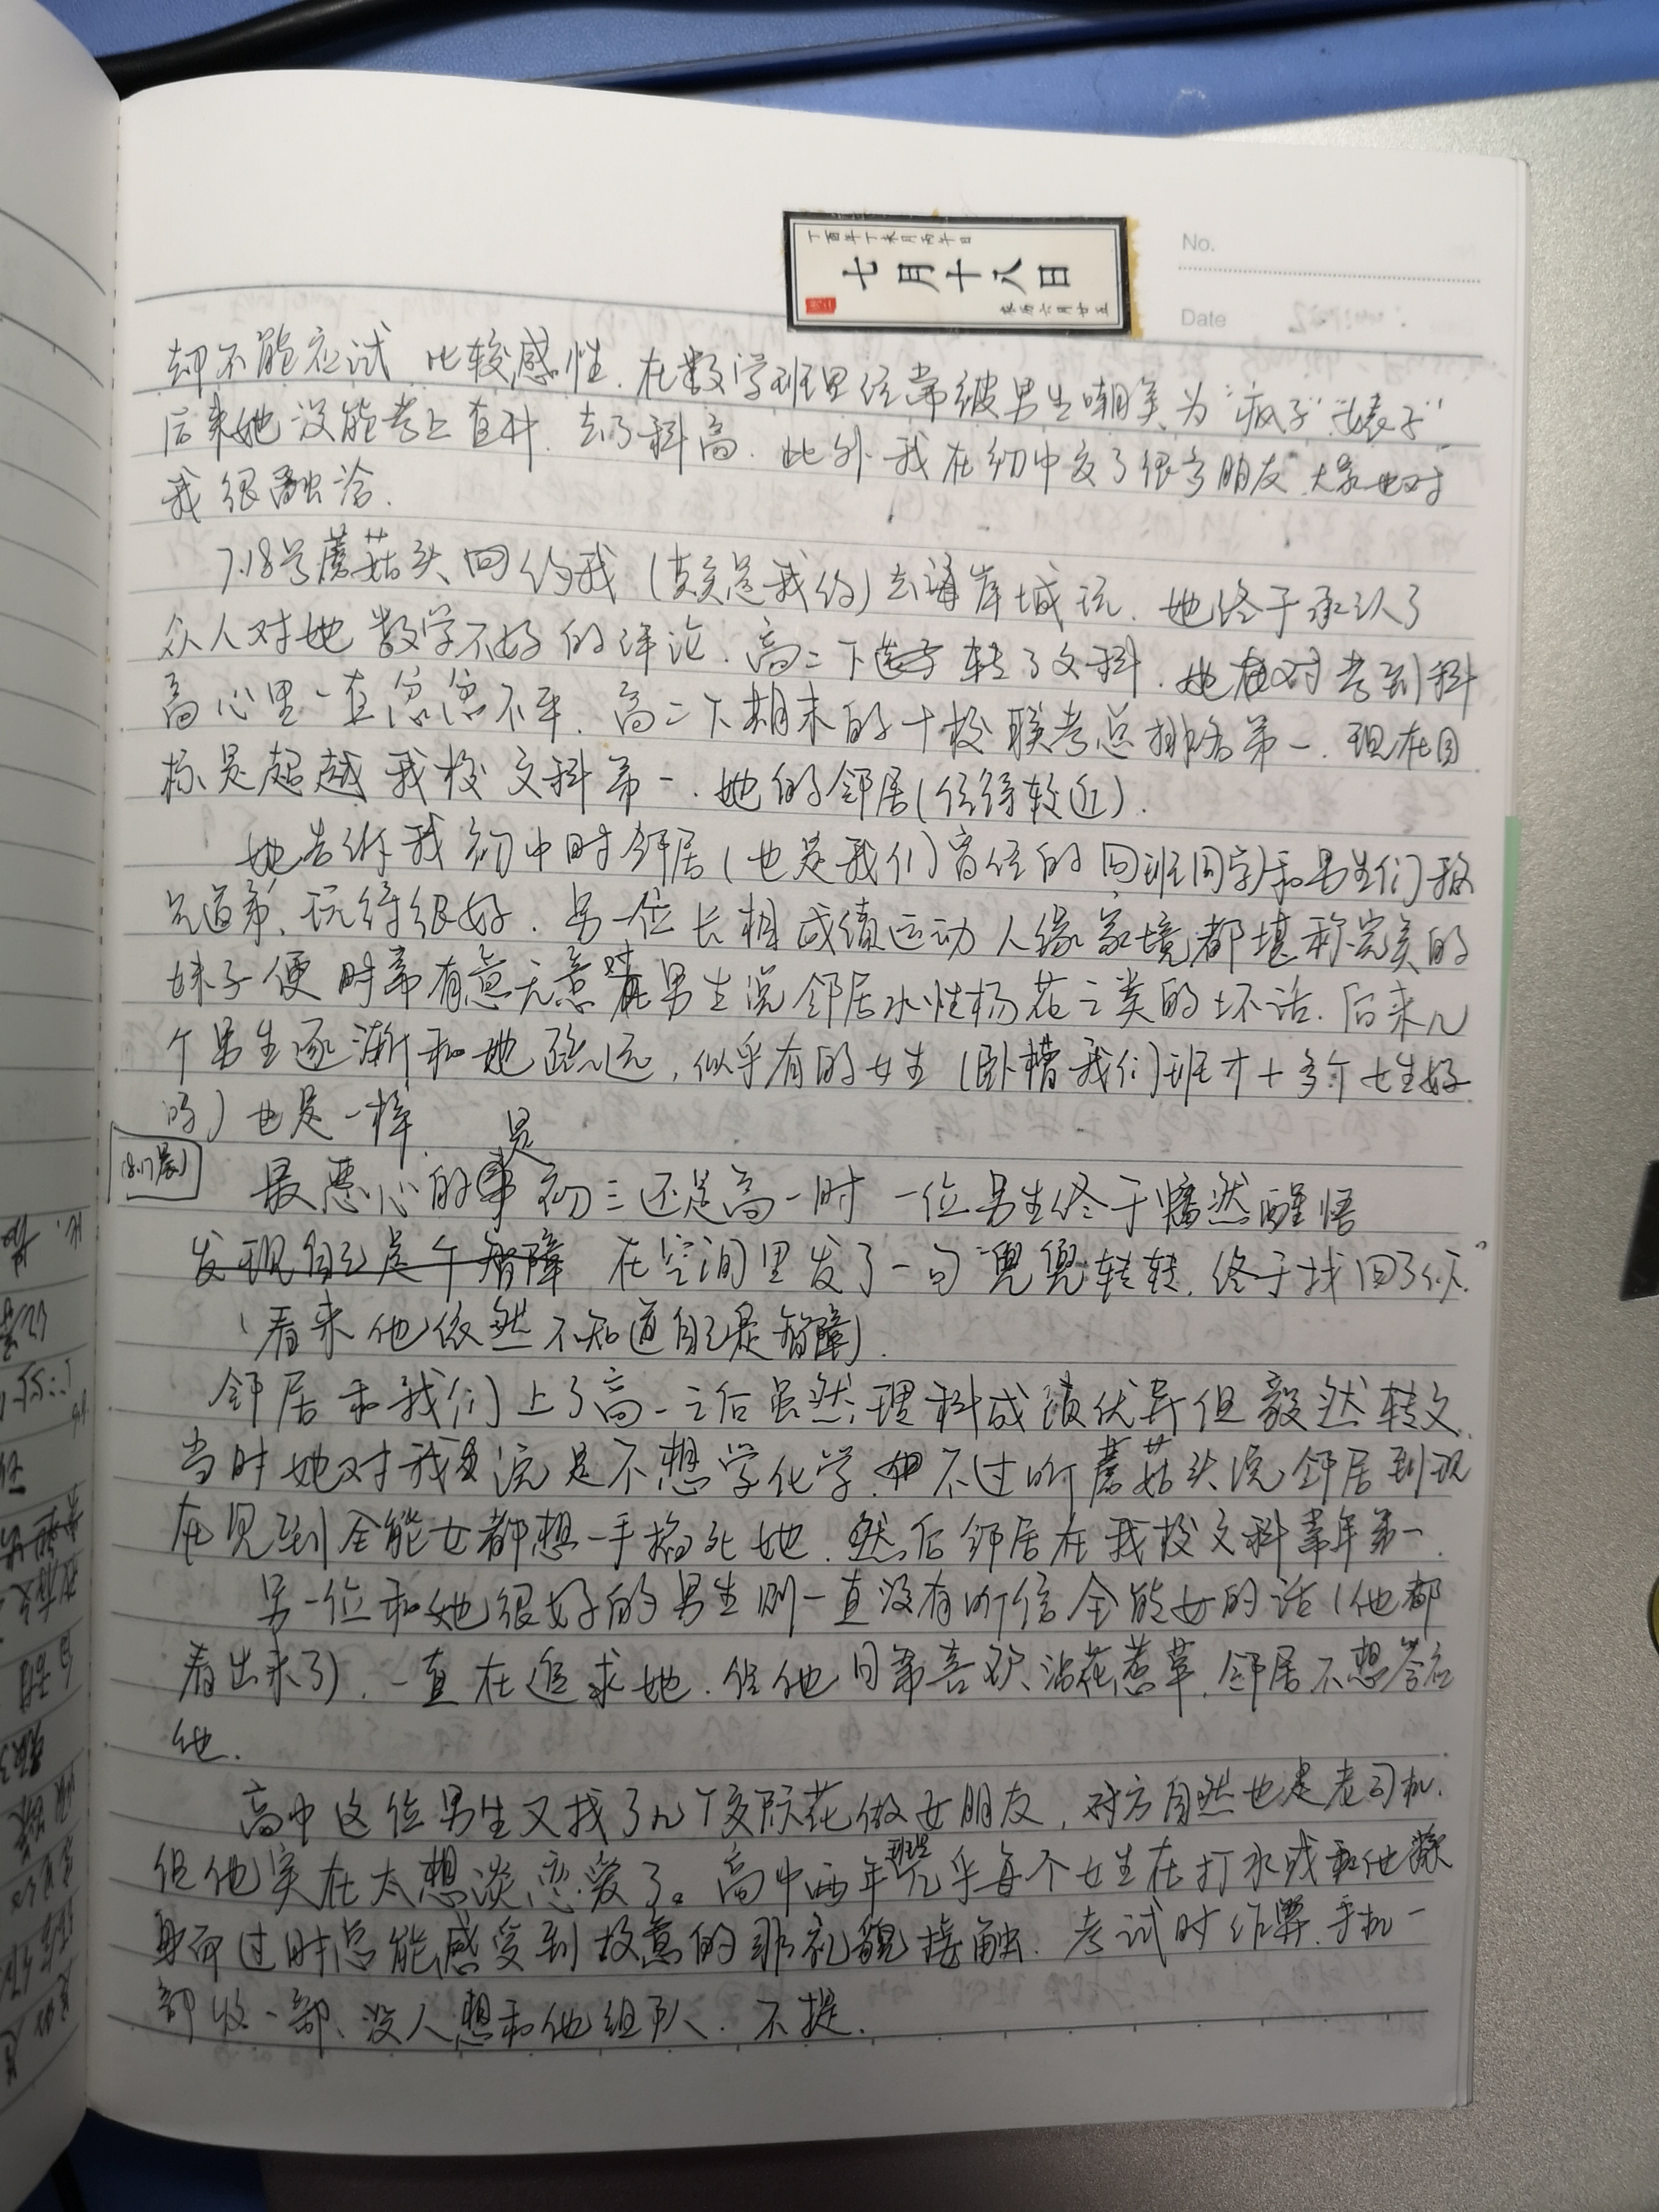 七月十八日
No.
Date
却不能应试 比较感性.在数学班里经常被男生嘲笑为“疯子”“婊子”
后来她没能考上直升.去了科高.此外我在初中交了很多朋友.大家也对
我很融洽.
7.18号蘑菇头回约我(其实是我约)去海岸城玩.她终于承认了
众人对她数学不好的评论.高二下 转了文科.她 对考到科
高心里一直忿忿不平.高二下期末的十校联考总排名第一.现在目
标是超越我校文科第一.她的邻居(住得较近).
她告诉我初中时邻居(也是我们 的同班同学)和男生们称
兄道弟、玩得很好.另一位长相成绩运动人缘家境都堪称完美的
妹子便时常有意无意对男生说邻居水性杨花之类的坏话.后来几
个男生逐渐和她疏远,似乎有的女生(卧槽我们班才十多个女生好
吗)也是一样.
最恶心的是初三还是高一时 一位男生终于幡然醒悟
发现自己是个智障 在空间里发了一句“兜兜转转,终于找回了你.”
(看来他依然不知道自己是智障).
邻居和我们上了高一之后虽然理科成绩优异但毅然转文.
当时她对我说是不想学化学.不过听蘑菇头说邻居到现
在见到全能女都想一手掐死她.然后邻居在我校文科常年第一.
另一位和她很好的男生则一直没有听信全能女的话(他都
看出来了).一直在追求她.但他日常喜欢沾花惹草.邻居不想答应
他.
高中这位男生又找了几个交际花做女朋友,对方自然也是老司机.
但他实在太想谈恋爱了。高中两年班里几乎每个女生在打水或和他擦
身而过时总能感受到故意的非礼貌接触.考试时作弊.手机一
部收一部、没人想和他组队.不提.